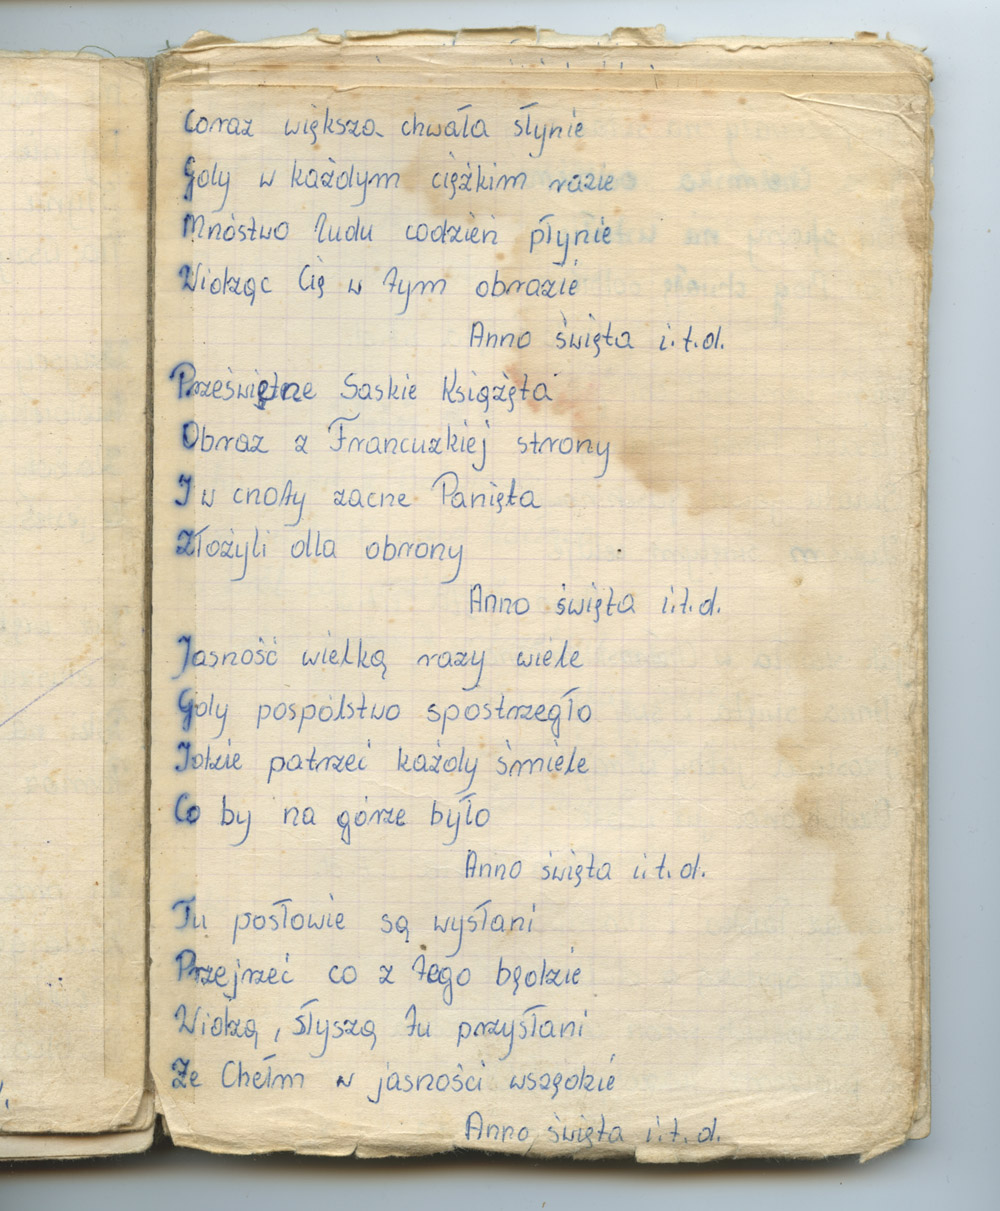 Coraz większa chwała słynie
Gdy w każdym ciężkim razie
Mnóstwo ludu codzień płynie
Widząc Cię w tym obrazie
Anno święta i.t.d.
Przeświętne Saskie Książęta
Obraz z Francuzkiej strony
I w cnoty zacne Panięta
Złożyli dla obrony
Anno święta i.t.d.
Jasność wielką razy wiele
Gdy pospólstwo spostrzegło
Idzie patrzeć każdy śmiele
Co by na górze było
Anno święta i.t.d.
Tu posłowie są wysłani
Przejrzeć co z tego będzie
Widzą, słyszą tu przysłani
Że Chełm w jasności wszędzie
Anno święta i.t.d.